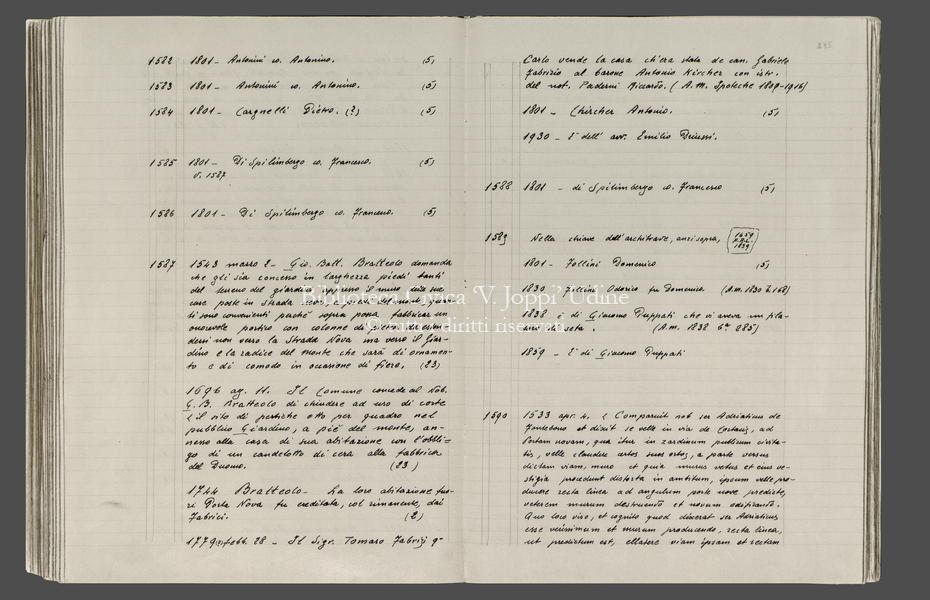 1582 1801 - Antonini co. Antonino. (5)
1583 1801 - Antonini co. Antonino. (5)
1584 1801 - Cargnelli Piétro. (?) (5)
1585 1801 - Di Spilimbergo co. Francesco. (5)
V. 1587
1586 1801 - Di Spilimbergo co. Francesco. (5)
1587 1543 marzo 2 - Gio. Batt. Bratteolo domanda
che gli sia concesso in larghezza piedi tanti
del terreno del giardino appresso il muro
case poste in Strada
ti sono convenienti perchè sopra possa fabbricar un
onorevole portico con colonne di
dersi non verso la Strada Nova ma verso il Giar-
dino e la radice del monte che sarà di ornamen-
to e di comodo in occasione di fiera. (23)
1696 ag. 11. Il Comune concede al Nob.
G. B. Bratteolo di chiudere ad uso di corte
il sito di pertiche otto per quadro nel
pubblico Giardino, a piè del monte, an-
nesso alla casa di sua abitazione con l'obbli-
go di un candelotto di cera alla fabbrica
del Duomo. (23)
1744 Bratteolo - La loro abitazione fuo-
ri Porta Nova fu ereditata, col rimanente, dai
Fabrici. (2)
1779 febb. 28 - Il Sigr. Tomaso Fabrizj q.
Carlo vende la casa ch'era stata de can. Gabriele
Fabrizio al barone Antonio Kircher con istr.
del not. Paderni Riccardo. (A.M. Ipoteche 1809-1916)
1801 - Chircher Antonio. (5)
1930 - È dell' avv. Emilio Driussi.
1588 1801 - di Spilimbergo co. Francesco (5)
1589 Nella chiave dell'architrave, anzisopra,
1859
1801 - Follini Domenico (5)
1830 Follini Odorico fu Domenico. (A.m. 1830 2.168)
1838 è di Giacomo Duppati che vi aveva un fila-
(A.m. 1838 6ª 285)
1859 - È di Giacomo Duppati
1590 1533 apr. 4. Comparuit nob ser Adriatius de
Fontebono et dixit se velle in via de Cortazis, ad
Portam novam, qua itur in zardinum publicum civita-
tis, velle claudere certos suos ortos, a parte versus
dictam viam, muro et quia murus vetus et eius ve-
stigia procedunt distorta in ambitum, ipsum velle pro-
ducere recta linea ad angulum porte nove predicte,
veterem murum destruendo et novum edificando.
Quo loco viso, et cognito quod dicerat ser Adriatius
esse verissimum et murum producendo recta linea,
ut predictum est, viam ipsam et rectam
Biblioteca Civica 'V. Joppi' Udine
© Tutti i diritti riservati